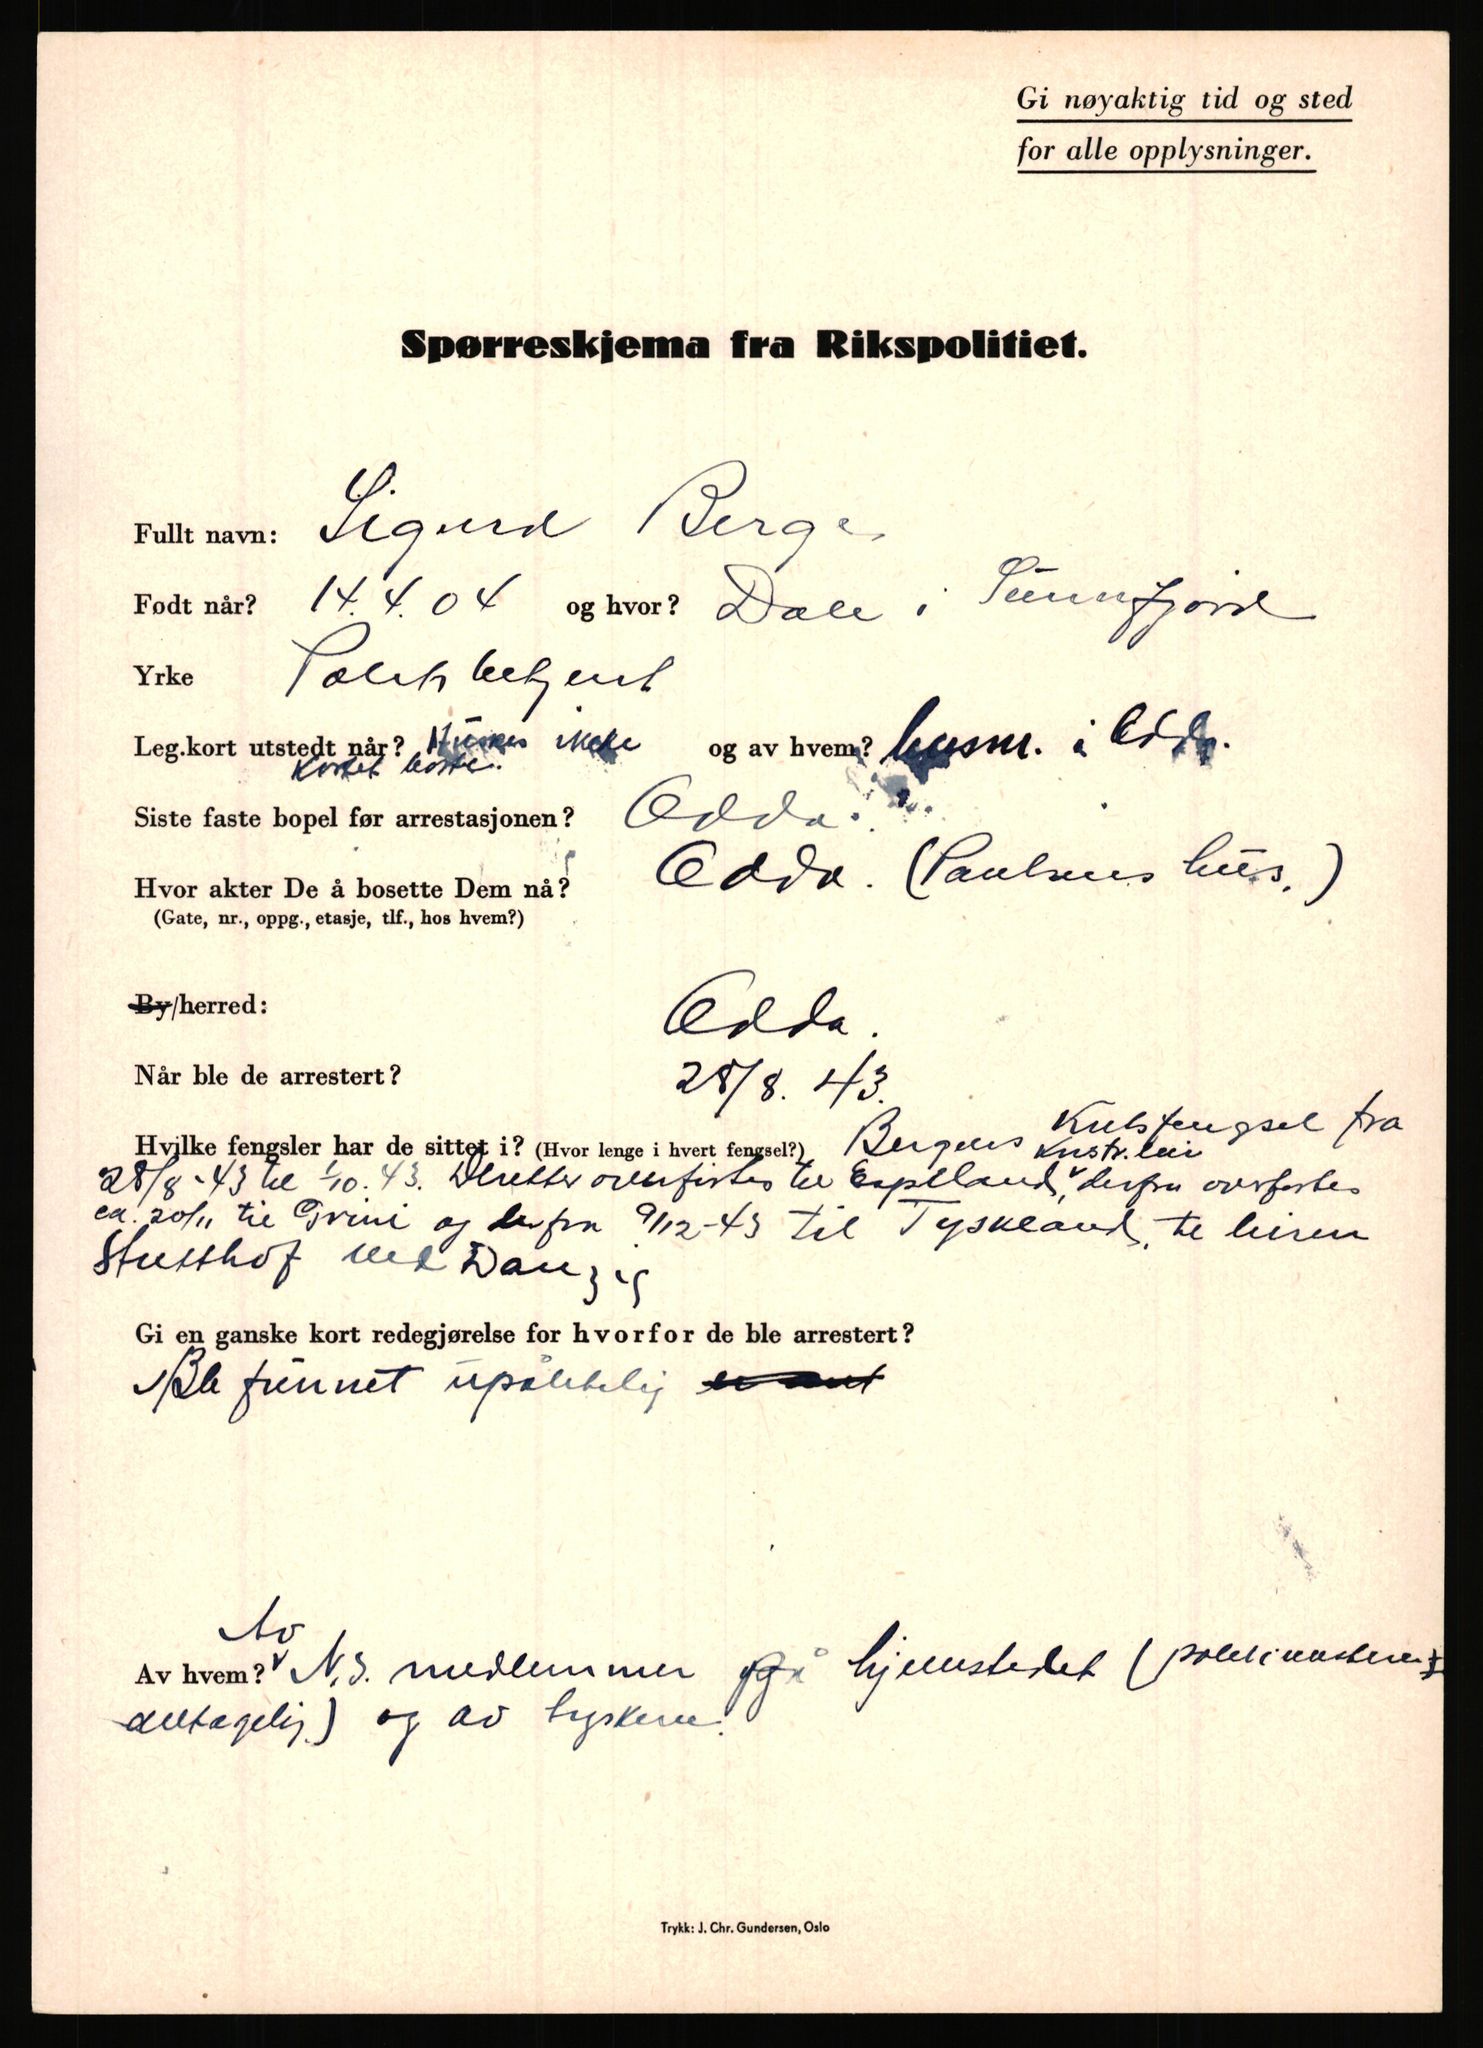 Gi nøyaktig tid og sted
for alle opplysninger.
Spørreskjema fra Rikspolitiet.
Fullt navn: Sigurd Berge.
Født når? 14.4.04 og hvor? Dale i Sunnfjord
Yrke Politibetjent
Leg.kort utstedt når? Huskes ikke og av hvem? lensm. i Odda.
Kortet borte.
Siste faste bopel før arrestasjonen? Odda.
Hvor akter De å bosette Dem nå? Odda. (Paulsens hus.)
(Gate, nr., oppg., etasje, tlf., hos hvem?)
By/herred: Odda.
Når ble de arrestert? 28/8. 43.
Hvilke fengsler har de sittet i? (Hvor lenge i hvert fengsel?) Bergens Kretsfengsel fra
28/8-43 til 1/10.43. Deretter overførtes til Espeland konstr.leir, derfra overførtes
ca. 20/11 til Grini og derfra 9/12-43 til Tyskland, til leiren
Stutthof ved Danzig
Gi en ganske kort redegjørelse for hvorfor de ble arrestert?
Ble funnet upålitelig
Av
Av hvem? N.S. medlemmer på hjemstedet (politimesteren
antagelig) og av tyskerne.
Trykk: J. Chr. Gundersen, Oslo